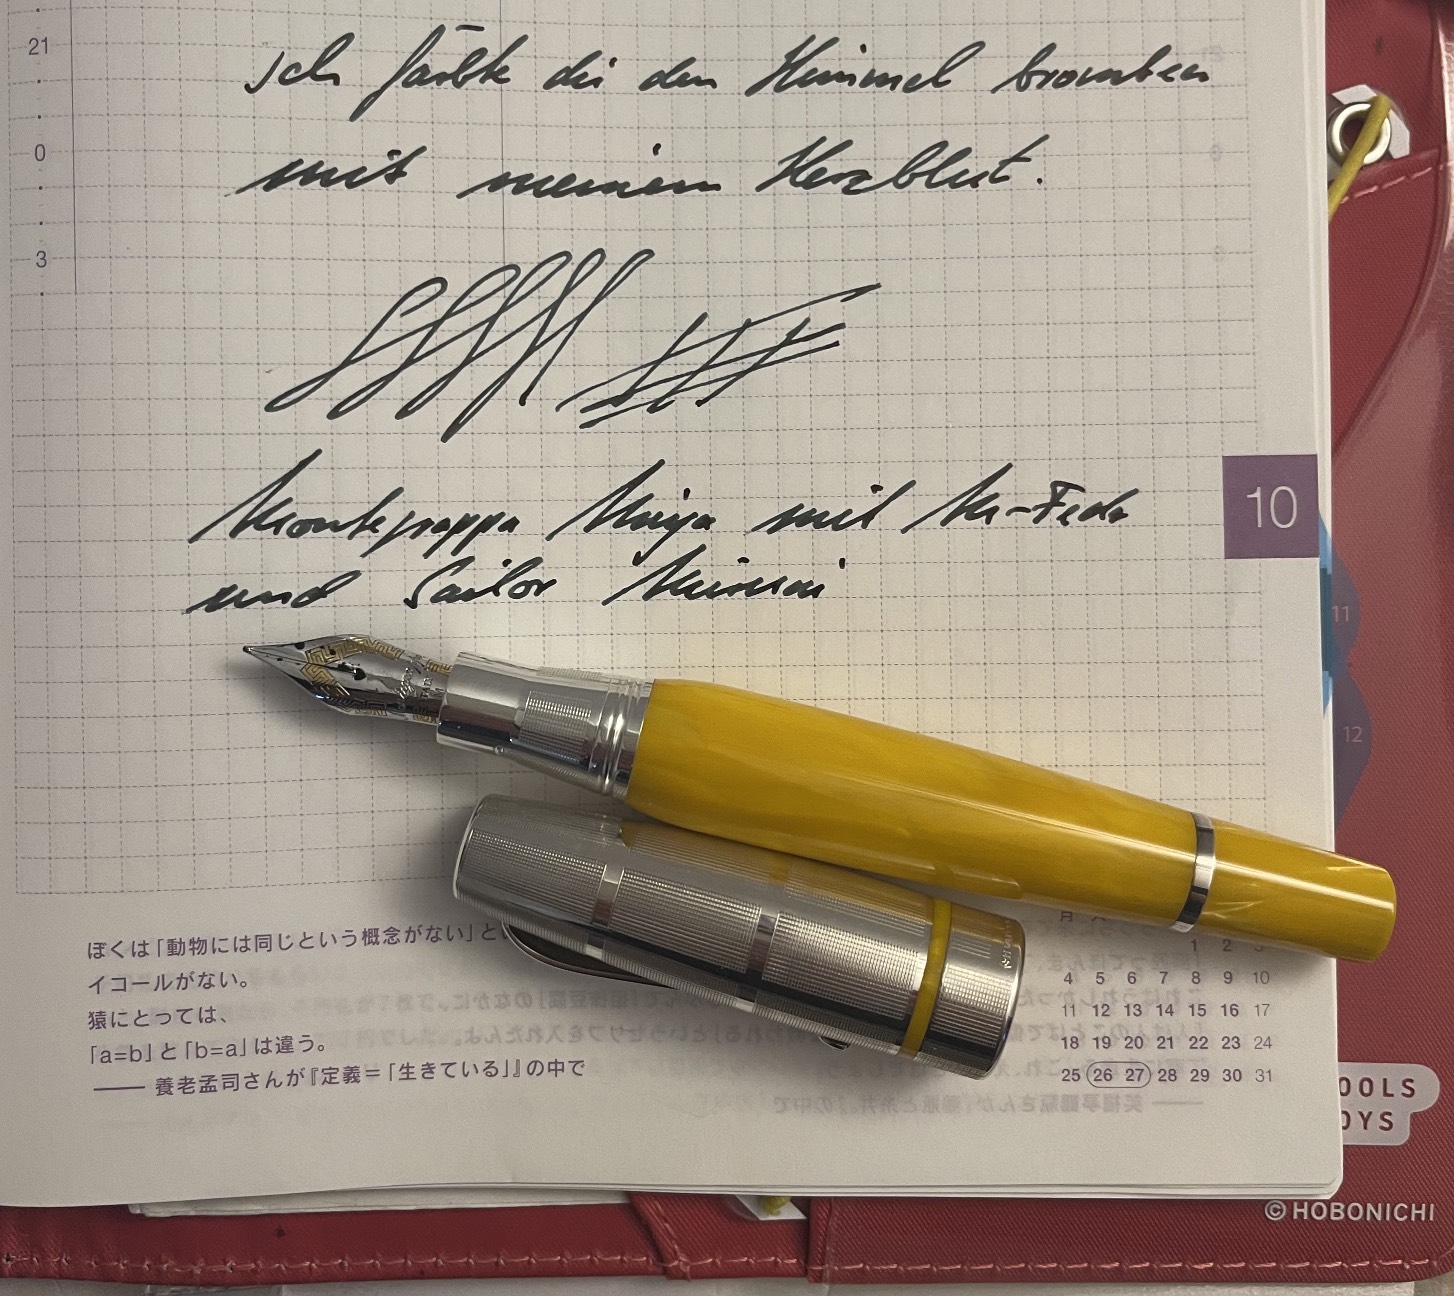 21
ich färbte dir den Himmel brombeer
0
mit meinem Herzblut.
3
Montegrappa Miya mit M-Feder
10
und Sailor
11
12
ぼくは「動物には同じという概念がない」と
イコールがない。
猿にとっては、
「a=b」と「b=a」は違う。
—— 養老孟司さんが『定義=「生きている」』の中で
月 火
1 2 3
4 5 6 7 8 9 10
11 12 13 14 15 16 17
18 19 20 21 22 23 24
25 26 27 28 29 30 31
OOLS
OYS
©HOBONICHI